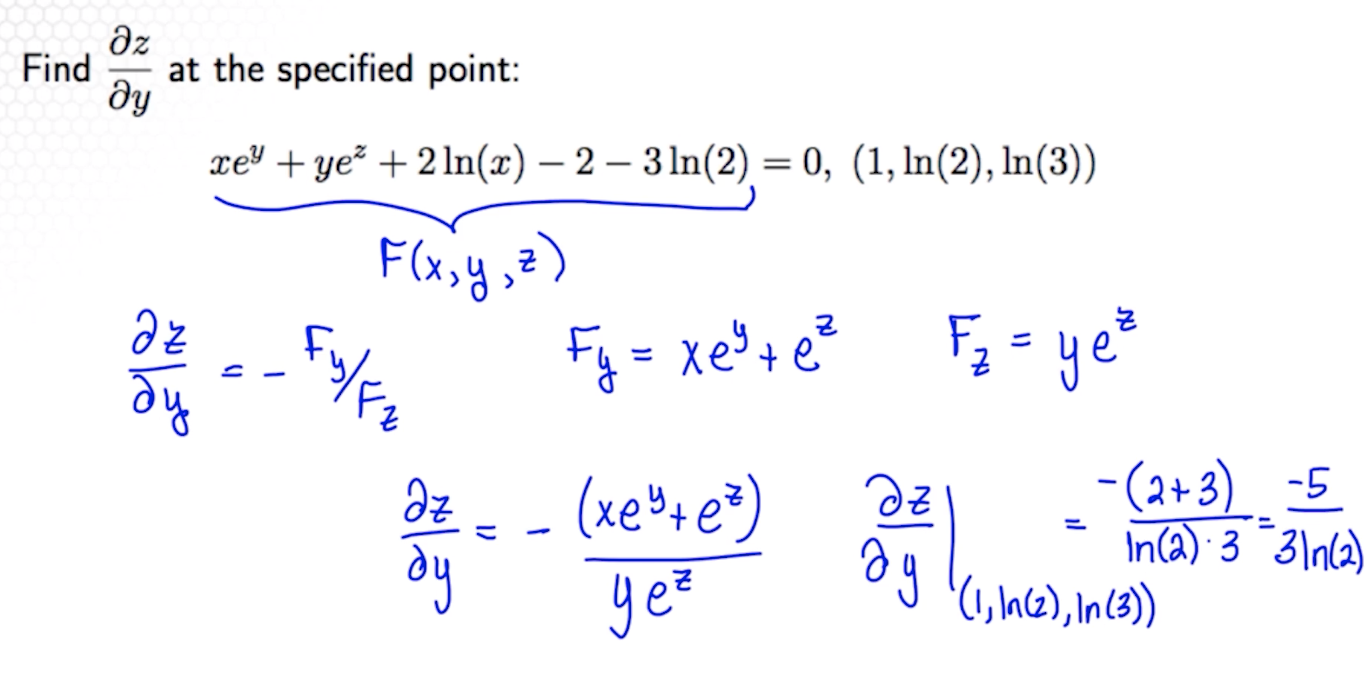 Find ∂z/∂y at the specified point:
xe^y + ye^z + 2 ln(x) − 2 − 3 ln(2) = 0, (1, ln(2), ln(3))
F(x,y,z)
∂z/∂y = - F_y/F_z F_y = xe^y + e^z F_z = ye^z
∂z/∂y = - (xe^y + e^z)/ye^z ∂z/∂y |_(1, ln(2), ln(3)) = -(2+3)/ln(2)·3 = -5/3ln(2)